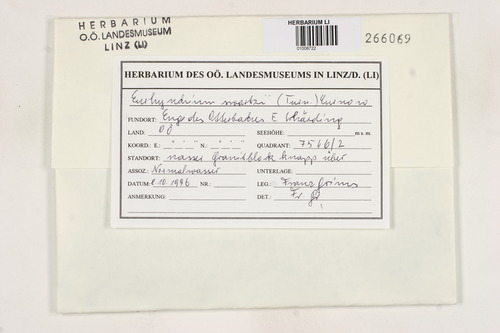 HERBARIUM
O.Ö. LANDESMUSEUM
LINZ (LI)
HERBARIUM LI
01008722
266069
HERBARIUM DES OÖ. LANDESMUSEUMS IN LINZ/D. (LI)
Eurhynchium swartzii (Turn.) Curnow
FUNDORT: Enge des E Schärding
LAND: OÖ SEEHÖHE: m s. m.
KOORD.: E.: ° ' " N.: ° ' " QUADRANT: 7546/2
STANDORT: nasser Granitblock knapp über
ASSOZ.: Normalwasser UNTERLAGE:
DATUM: 1.10.1996 NR.: LEG.: Franz Grims
ANMERKUNG: DET.: Fr. Gr.